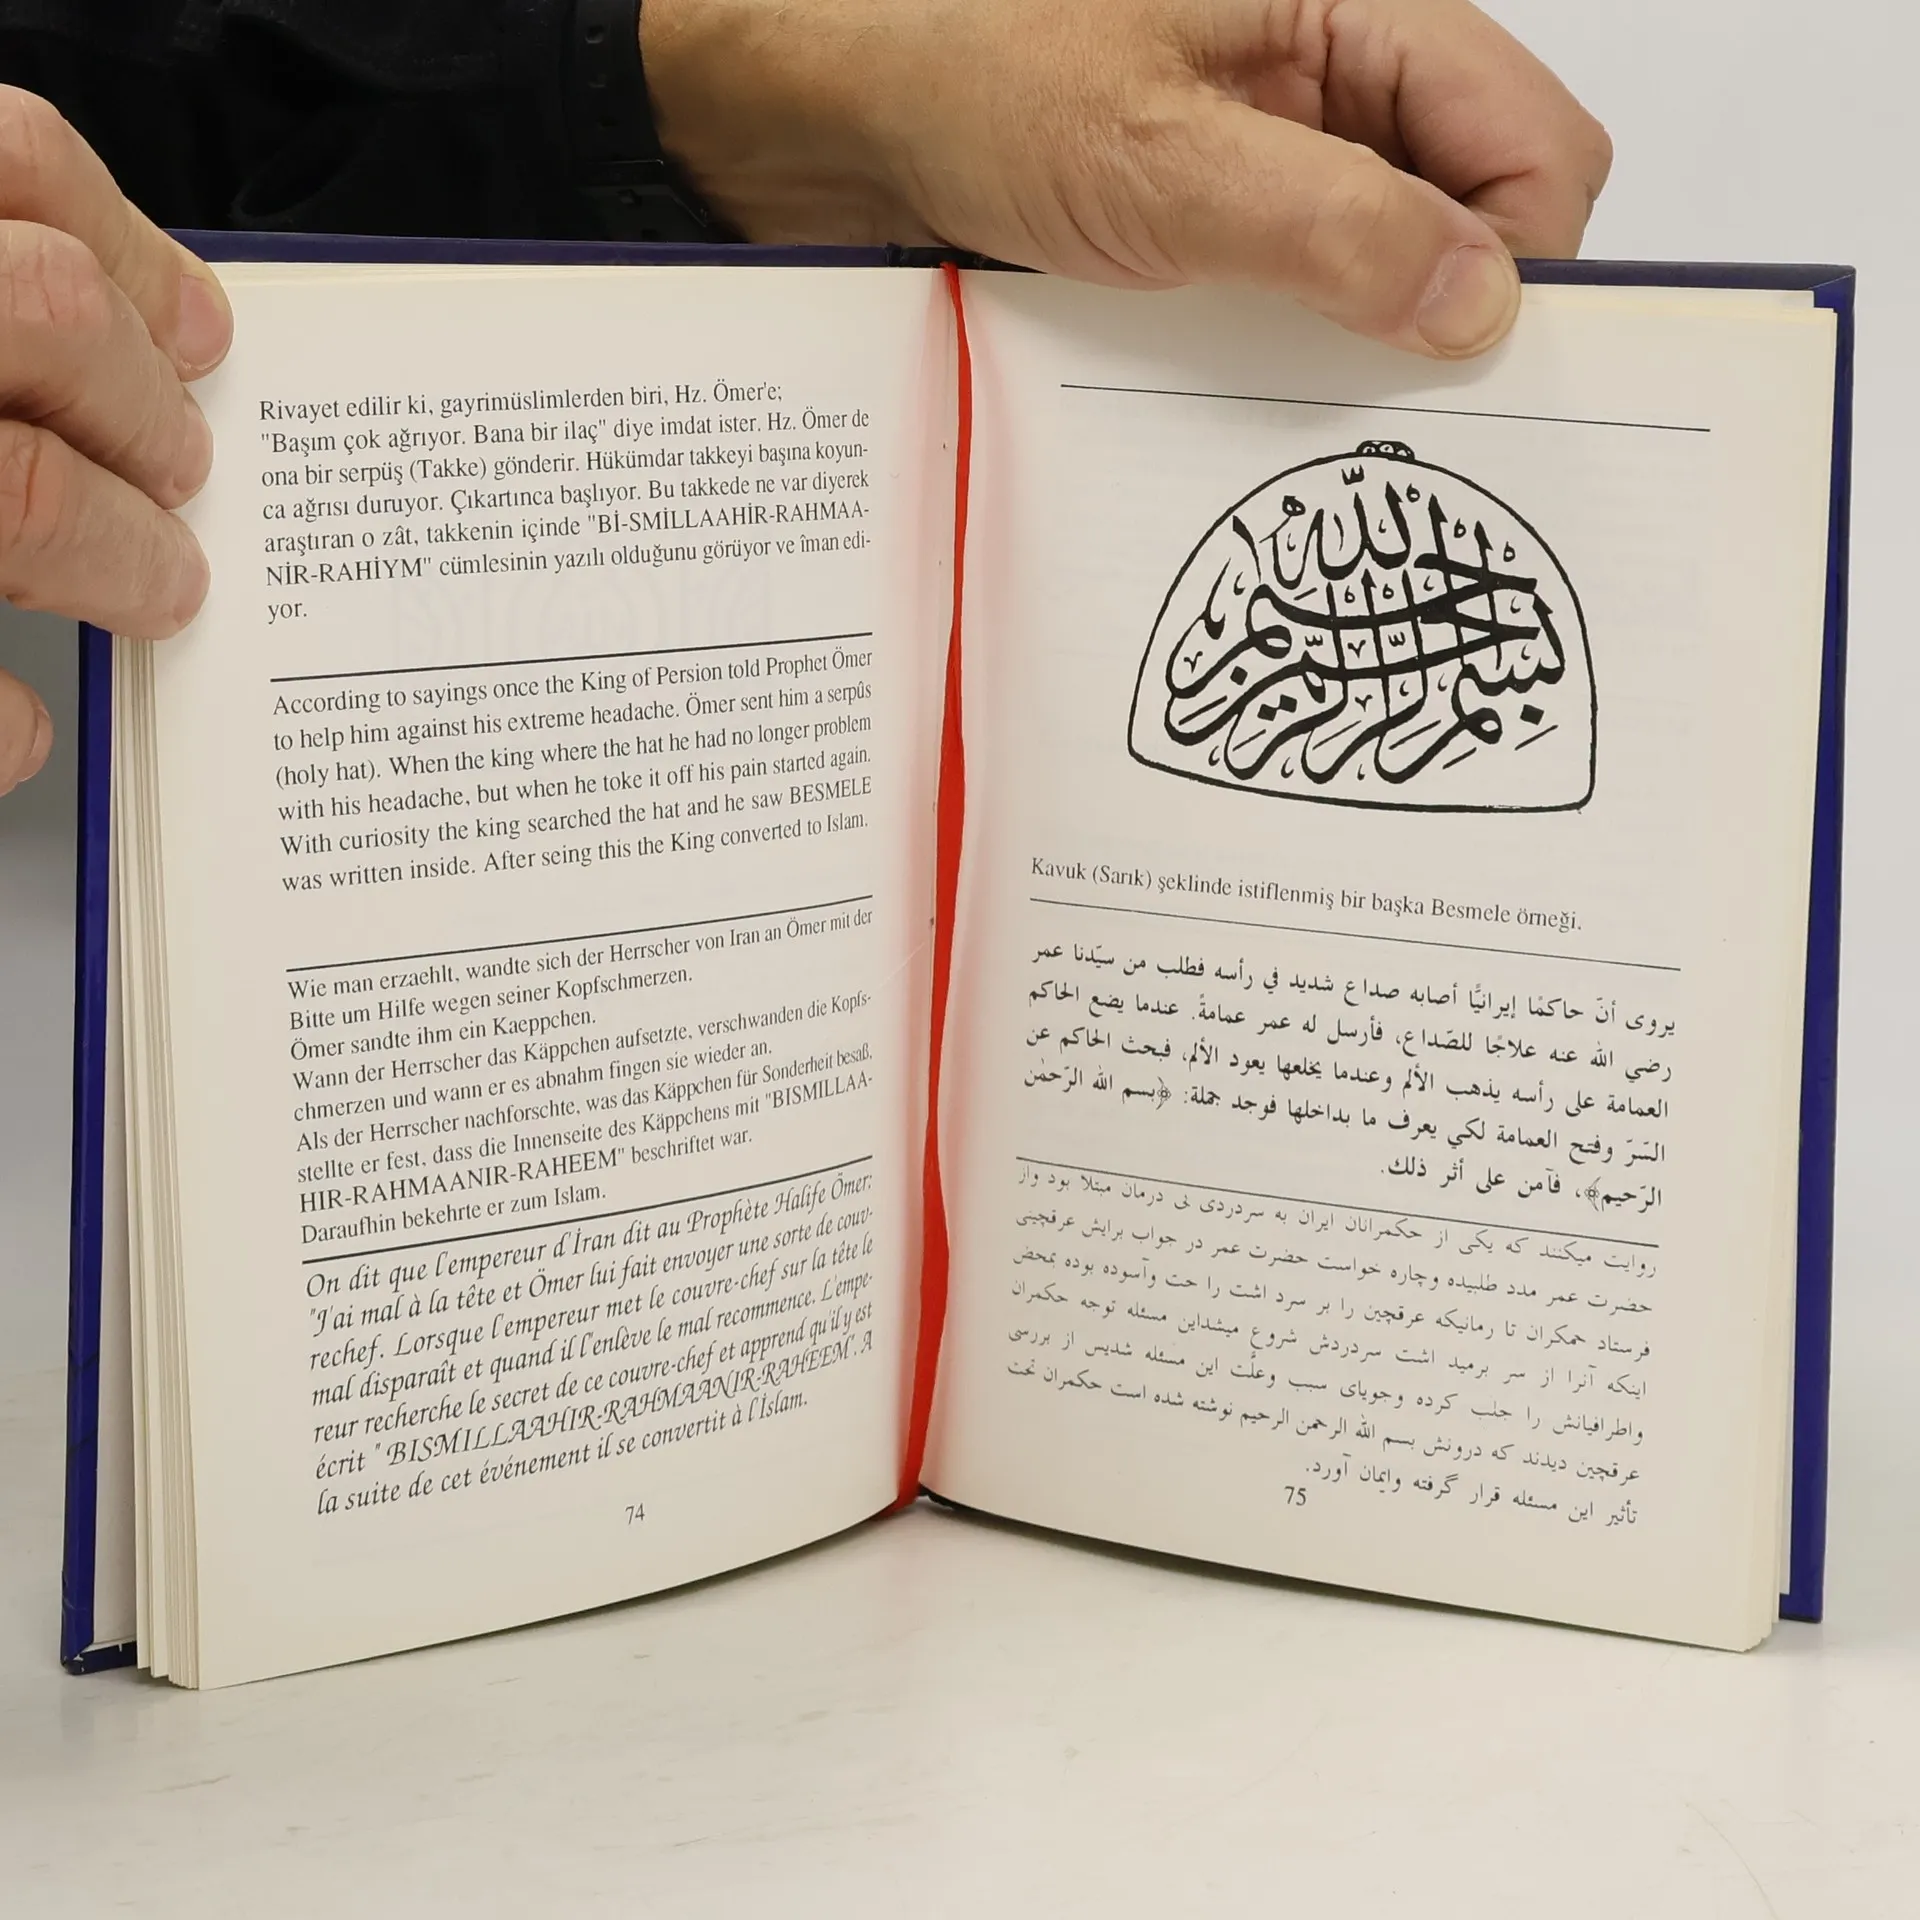 Rivayet edilir ki, gayrimüslimlerden biri, Hz. Ömer'e;
"Başım çok ağrıyor. Bana bir ilaç" diye imdat ister. Hz. Ömer de
ona bir serpüş (Takke) gönderir. Hükümdar takkeyi başına koyun-
ca ağrısı duruyor. Çıkartınca başlıyor. Bu takkede ne var diyerek
araştıran o zât, takkenin içinde "Bİ-SMİLLAAHİR-RAHMAA-
NİR-RAHİYM" cümlesinin yazılı olduğunu görüyor ve îman edi-
yor.
According to sayings once the King of Persion told Prophet Ömer
to help him against his extreme headache. Ömer sent him a serpûs
(holy hat). When the king where the hat he had no longer problem
with his headache, but when he toke it off his pain started again.
With curiosity the king searched the hat and he saw BESMELE
was written inside. After seing this the King converted to Islam.
Wie man erzaehlt, wandte sich der Herrscher von Iran an Ömer mit der
Bitte um Hilfe wegen seiner Kopfschmerzen.
Ömer sandte ihm ein Kaeppchen.
Wann der Herrscher das Käppchen aufsetzte, verschwanden die Kopfs-
chmerzen und wann er es abnahm fingen sie wieder an.
Als der Herrscher nachforschte, was das Käppchen für Sonderheit besaß,
stellte er fest, dass die Innenseite des Käppchens mit "BISMILLAA-
HIR-RAHMAANIR-RAHEEM" beschriftet war.
Daraufhin bekehrte er zum Islam.
On dit que l'empereur d'İran dit au Prophète Halife Ömer:
"J'ai mal à la tête et Ömer lui fait envoyer une sorte de couv-
rechef. Lorsque l'empereur met le couvre-chef sur la tête le
mal disparaît et quand il l'enlève le mal recommence. L'empe-
reur recherche le secret de ce couvre-chef et apprend qu'il y est
écrit " BISMILLAAHIR-RAHMAANIR-RAHEEM". A
la suite de cet événement il se convertit à l'İslam.
74
بسم الله الرحمن الرحيم
Kavuk (Sarık) şeklinde istiflenmiş bir başka Besmele örneği.
يروى أنّ حاكمًا إيرانيًّا أصابه صداع شديد في رأسه فطلب من سيّدنا عمر
رضي الله عنه علاجًا للصّداع، فأرسل له عمر عمامةً. عندما يضع الحاكم
العمامة على رأسه يذهب الألم وعندما يخلعها يعود الألم، فبحث الحاكم عن
السّرّ وفتح العمامة لكي يعرف ما بداخلها فوجد جملة: ﴿بسم الله الرّحمٰن
الرّحيم﴾، فآمن على أثر ذلك.
روايت ميكنند كه يكى از حكمرانان ايران به سردردى بى درمان مبتلا بود واز
حضرت عمر مدد طلبيده وچاره خواست حضرت عمر در جواب برايش عرقچينى
فرستاد حمكران تا رمانيكه عرقچين را بر سرد اشت را حت وآسوده بوده بمحض
اينكه آنرا از سر برميد اشت سردردش شروع ميشداين مسئله توجه حكمران
واطرافيانش را جلب كرده وجوياى سبب وعلّت اين مسئله شديس از بررسى
عرقچين ديدند كه درونش بسم الله الرحمن الرحيم نوشته شده است حكمران تحت
تأثير اين مسئله قرار گرفته وايمان آورد.
75